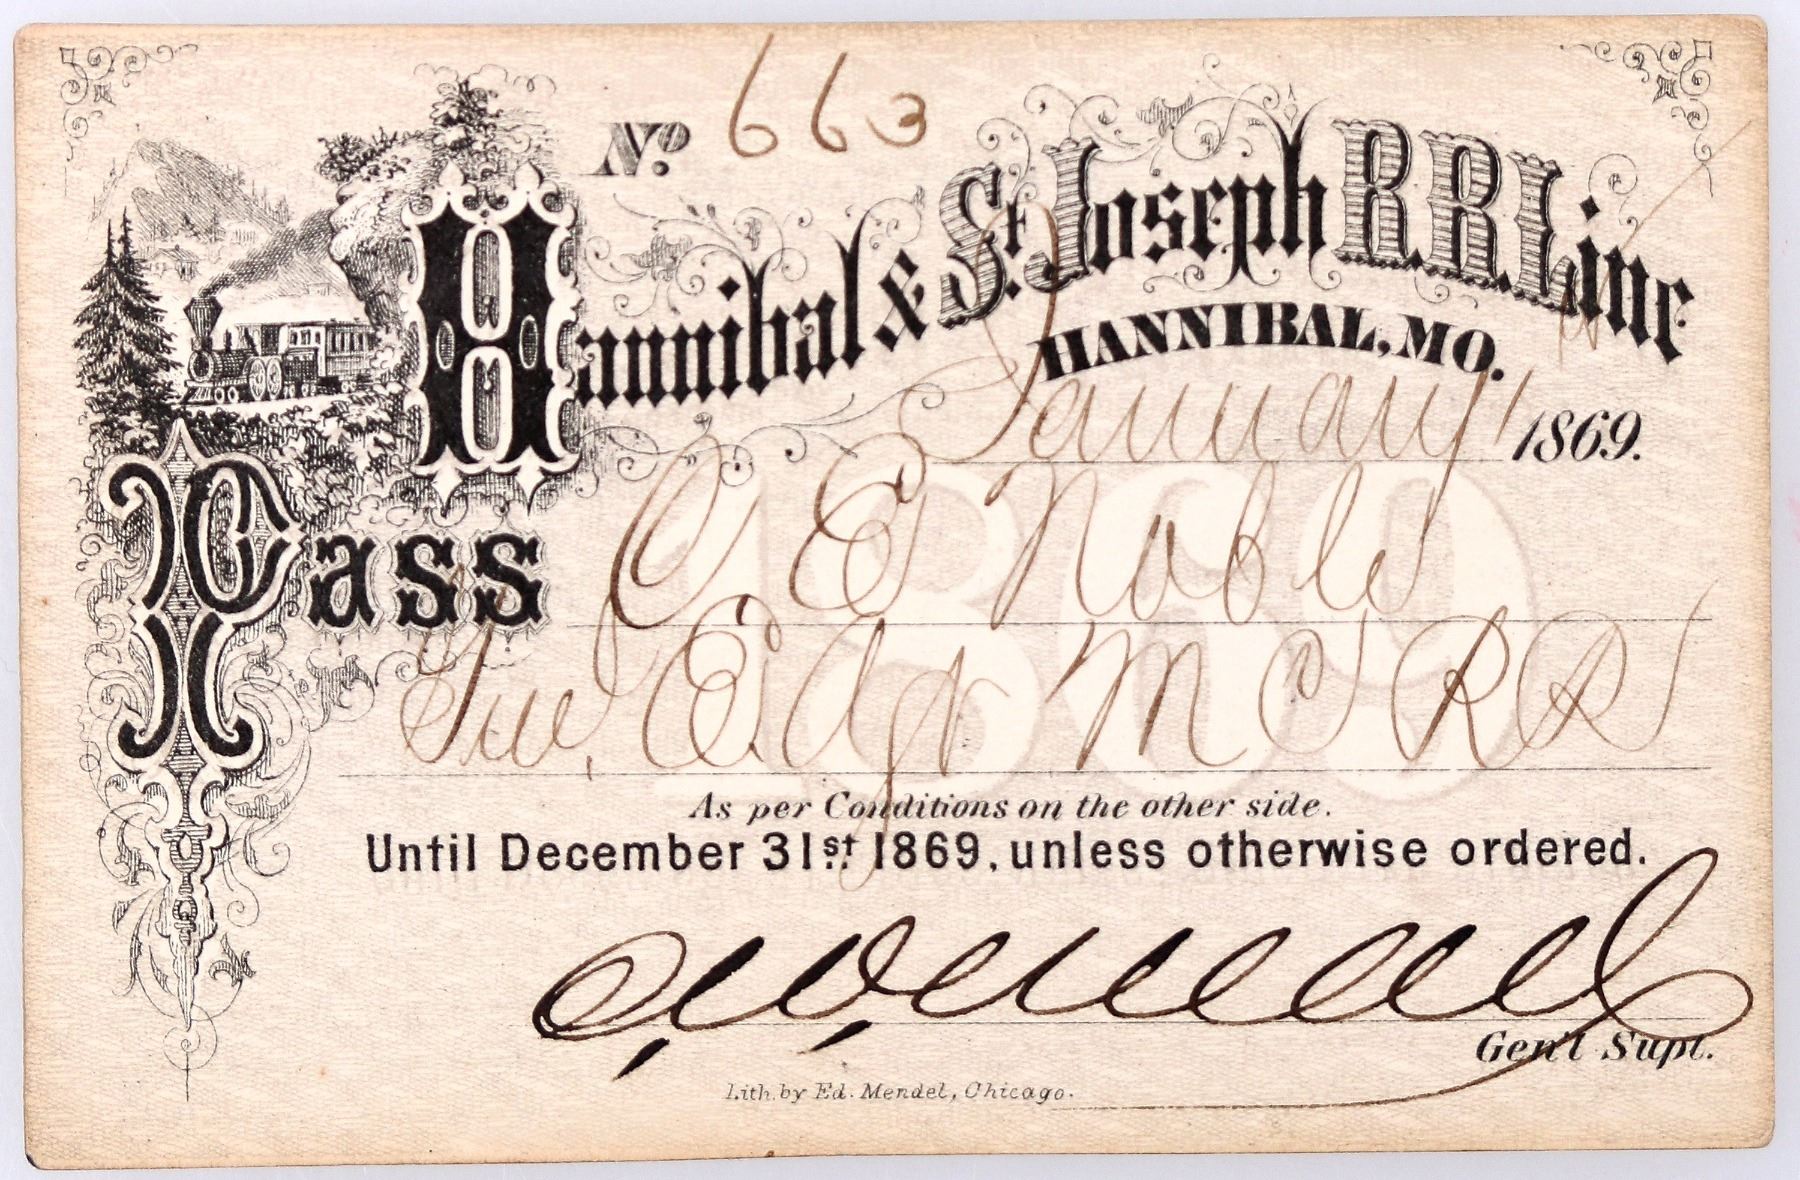 No. 663
Hannibal & St. Joseph R.R. Line
HANNIBAL, MO.
January 1 1869.
Pass C E Noble
Edgr M C R R
As per Conditions on the other side.
Until December 31st. 1869, unless otherwise ordered.
Gen'l Supt.
Lith. by Ed. Mendel, Chicago.
1869